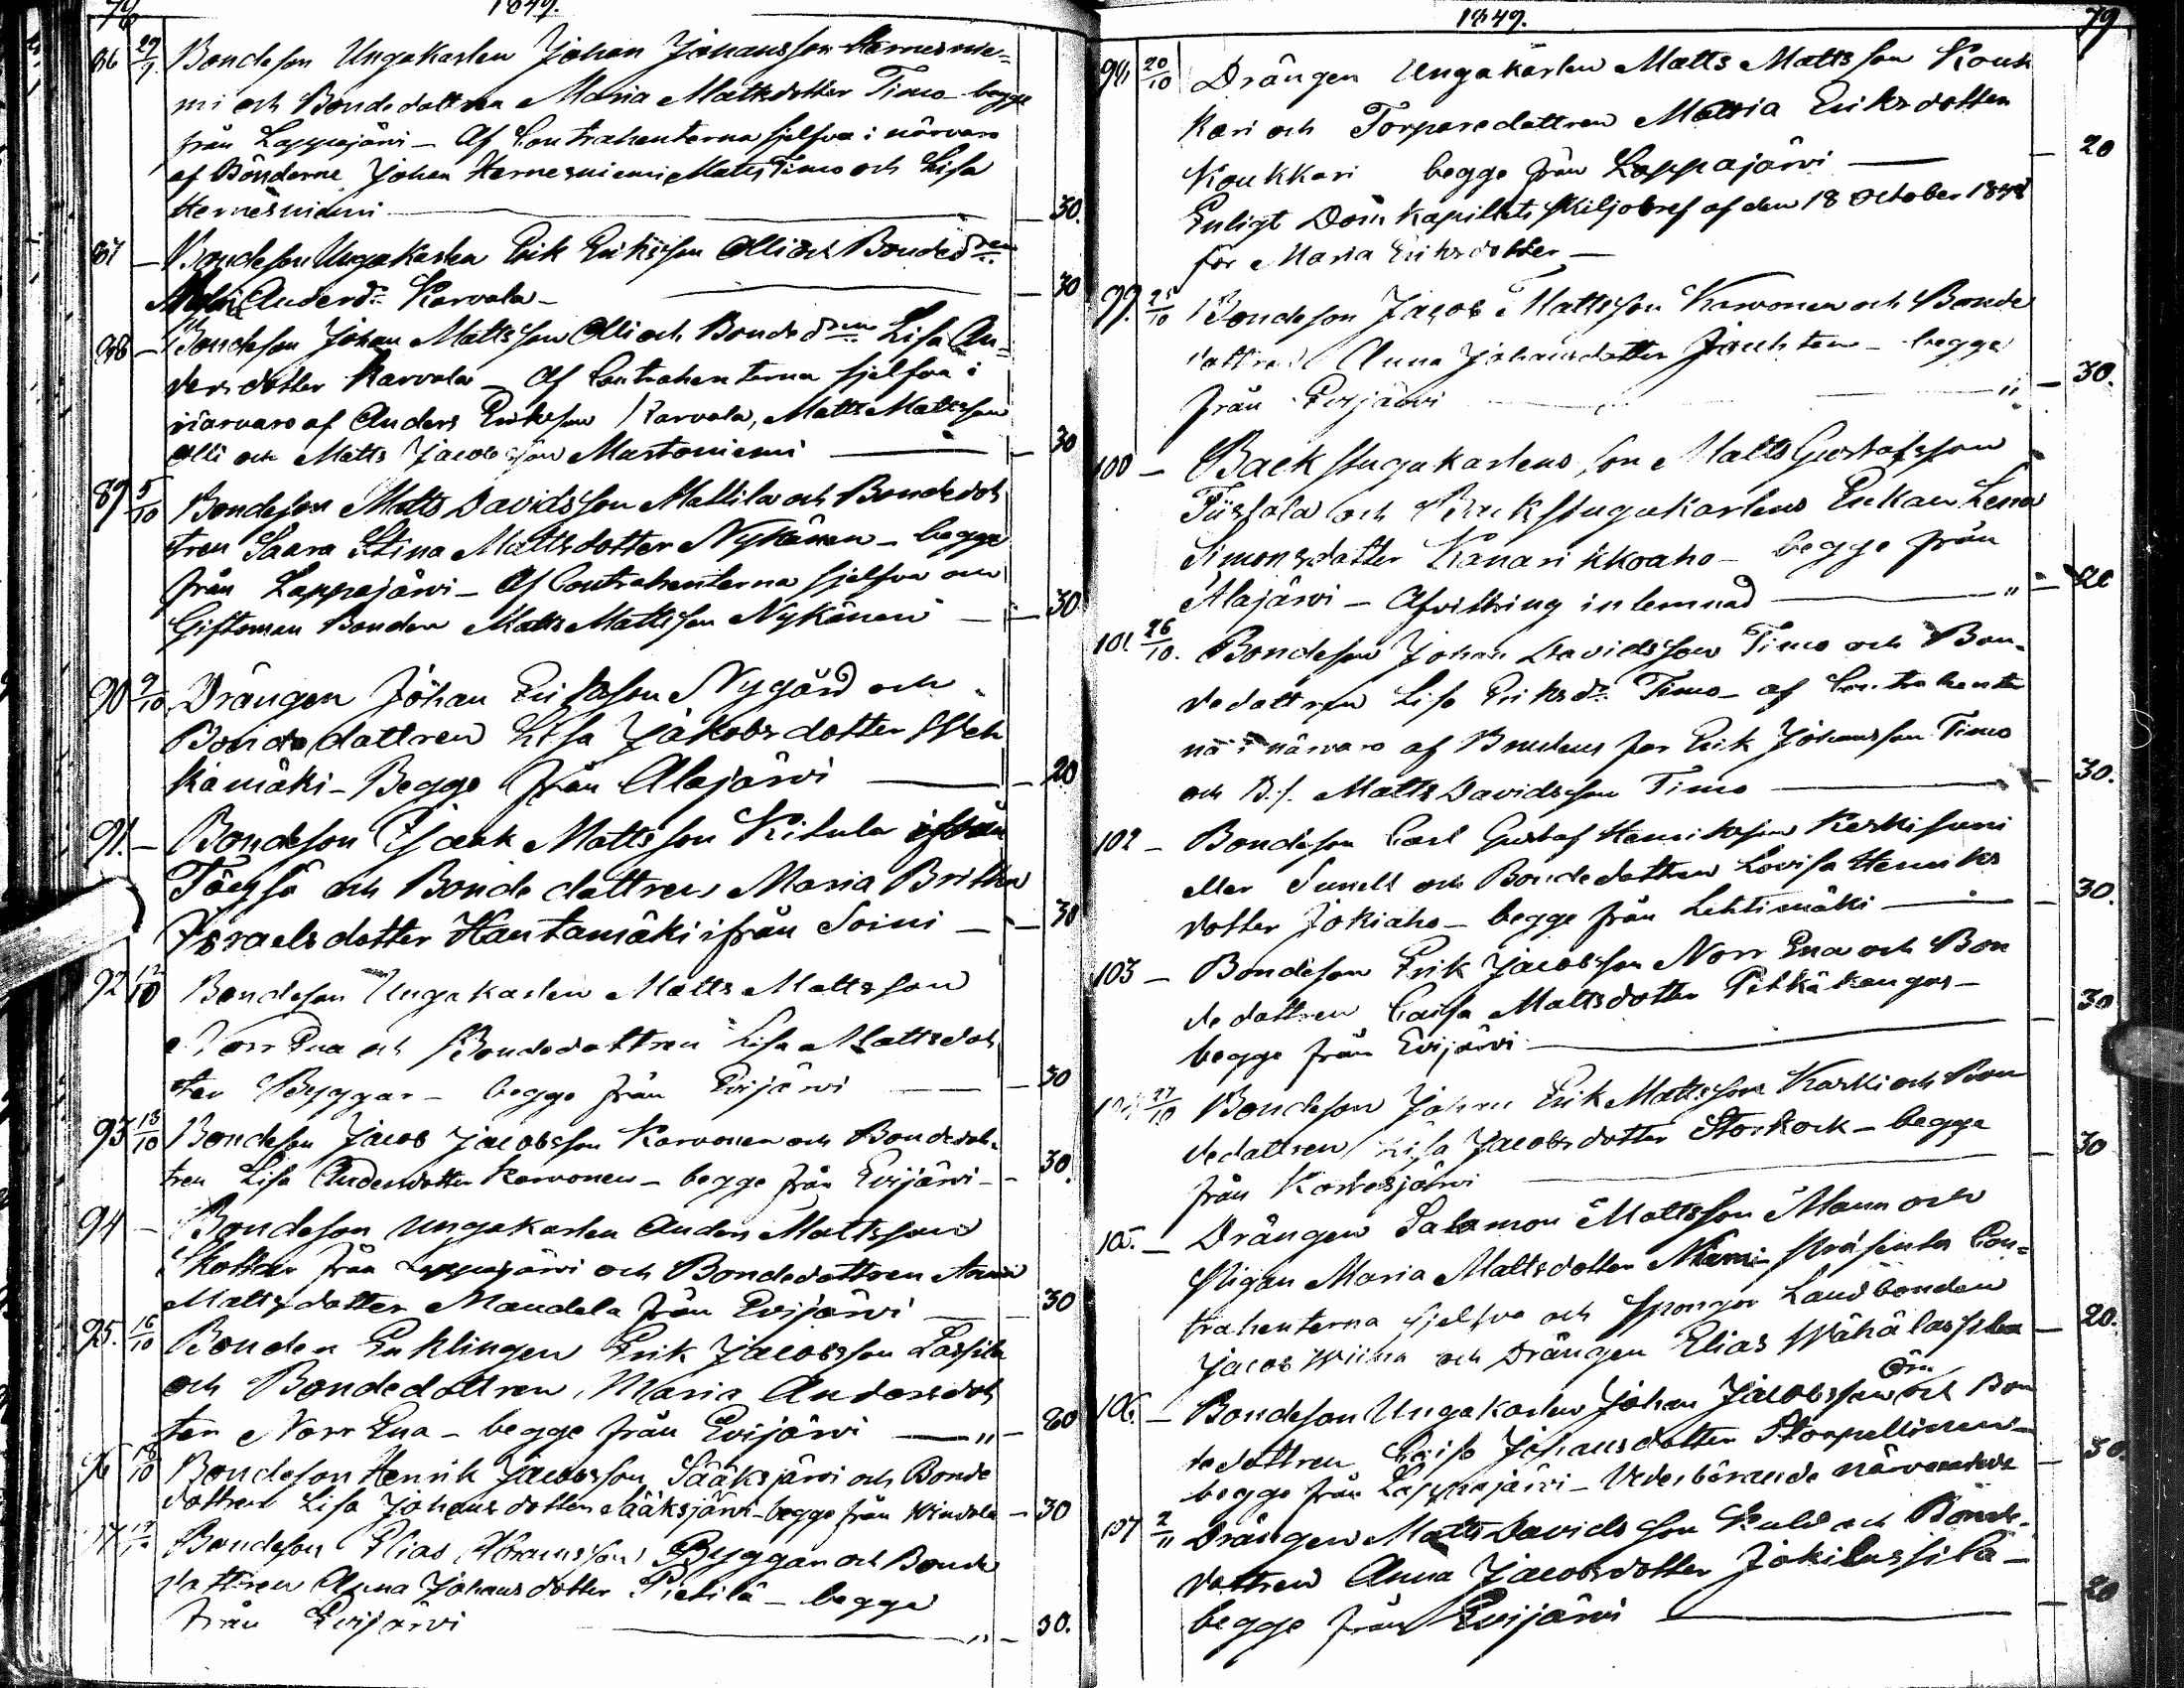 78 1849.
86 29/9 Bondeson Ungakarlen Johan Johansson Hernesnie-
mi och Bondedottren Maria Mattsdotter Timo begge
från Lappajärvi - Af Contrahenterna sjelfva i närvaro
af Bönderne Johan Hernesniemi Matts Timo och Lisa
Hernesniemi - 30.
87 - Bondeson Ungakarlen Erik Eriksson Olli och Bondedren
Andersdr Karvala - 30
88 - Bondeson Johan Mattsson Olli och Bondedren Lisa An-
dersdotter Karvala - Af Contrahenterna sjelfva i
närvaro af Anders Eriksson Karvala, Matts Mattsson
Olli och Matts Jacobsson Martoniemi - 30
89 5/10 Bondeson Matts Davidsson Mattila och Bondedot
tren Saara Stina Mattsdotter Nykänen - begge
från Lappajärvi - Af Contrahenterna sjelfva och
Giftoman Bonden Matts Mattsson Nykänen - 30
90 9/10 Drängen Johan Eriksson Nygård och
Bondedottren Lisa Jakobsdotter
kamäki - Begge från Alajärvi - 20
91. - Bondeson Isaak Mattsson Ritula ifrån
Töysä och Bondedottren Maria Britha
Israelsdotter Hautamäki ifrån Soini - 30
92 12/10 Bondeson Ungakarlen Matts Mattsson
Norr Ena och Bondedottren Lisa Mattsdot
ter Byggar - begge från Evijärvi - 30
93 13/10 Bondeson Jacob Jacobsson Karvonen och Bondedot-
tren Lisa Andersdotter Karvonen - begge från Evijärvi - 30.
94 - Bondeson Ungakarlen Anders Mattsson
från Lappajärvi och Bondedottren Anna
Mattsdotter Mandela från Evijärvi - 30
95. 16/10 Bonden Enklingen Erik Jacobsson Lassila
och Bondedottren Maria Andersdot
ter Norr Ena - begge från Evijärvi - " - 60
96 18/10 Bondeson Henrik Jacobsson Sääksjärvi och Bonde
dottren Lisa Johansdotter Sääksjärvi - begge från Windala - 30
97 Bondeson Elias Abramsson Byggar och Bonde
dottren Anna Johansdotter Pietilä - begge
från Evijärvi - " - 30.
1849. 79
98 20/10 Drängen Ungakarlen Matts Mattsson Kouk
kari och Torparedottren Maria Eriksdotter
Koukkari begge från Lappajärvi - 20
Enligt Domkapitlets skiljobref af den 18 October
för Maria Eriksdotter -
99. 25/10 Bondeson Jacob Mattsson Karvonen och Bonde
dottren Anna Johansdotter - begge
från Evijärvi - " - 30.
100 - Backstugakarlens son Matts Gustafsson
och Backstugukarlens Enkan Lena
Simonsdotter Kanarikkoaho - begge från
Alajärvi - Afvittring inlemnad - " - 20
101. 26/10. Bondeson Johan Davidsson Timo och Bon-
dedottren Lisa Eriksdr Timo - af Contrahenter
na i närvaro af Brudens far Erik Johansson Timo
och B.s. Matts Davidsson Timo - 30.
102 - Bondeson Carl Gustaf Henriksson Keskisuni
eller Sunell och Bondedottren Lovisa Henriks
dotter Jokiaho - begge från Lehtimäki - 30.
103 - Bondeson Erik Jacobsson Norr Ena och Bon
dedottren Caisa Mattsdotter Pitkäkangas -
begge från Evijärvi - 30
104 27/10 Bondeson Johan Erik Mattsson Karki och Bon
dedottren Lisa Jacobsdotter Storkock - begge
från Kortesjärvi - 30
105. - Drängen Salomon Mattsson Mann och
Pigan Maria Mattsdotter Niemi - Con-
trahenterna sjelfva och Landbonden
Jacob och Drängen Elias - 20.
106. - Bondeson Ungakarlen Johan Jacobsson och Bon
dedottren Caisa Johansdotter Storpellinen -
begge från Lappajärvi - Vederbörande närvarande - 30.
107 2/11 Drängen Matts Davidsson och Bonde-
dottren Anna Jacobsdotter Jokilassila -
begge från Evijärvi - 20